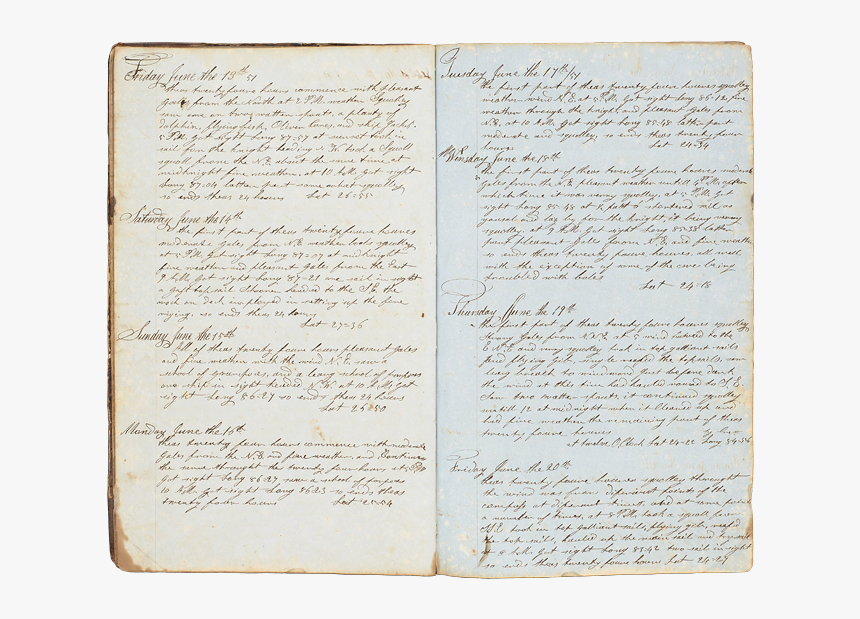 Friday June the 13th 51
theas twenty foure houers commence with pleasent
Gales from the North at 2 P.M. weather Squaley
saw one or two watter spouts, a plenty of
dolphin, flyingfish,
5 P.M. Got sight Long 87=57 at sunset took in
sail for the knight heading N.W. took a Squall
squall from the N.E. about the same time at
midnight fine weather. at 10 A.M. Got sight
Long 87=04 latter part some what squally
so ends theas 24 houers Lat 26=55
Saturday June the 14th
the first part of theas twenty foure houers
moderate Gales from N.E. weather looks squalley
at 5 P.M. Got sight Long 87=37 at midKnight
fine weather and pleasent Gales from the East
9 A.M. Got sight Long 87=21 one sail in sight
a Gaft topsail Schooner headed to the S.E. the
work on deck imployed in setting up the fore
riging. so ends theas 24 houers
Lat 27=36
Sunday June the 15th
All of theas twenty foure houers pleasent Gales
and fine weather with the wind N.E. saw a
school of Grampuses, and a learg school of porposes
one ship in sight headed N.W. at 10 A.M. Got
sight Long 86=27 so ends theas 24 houers
Lat 25=50
Monday June the 16th
theas twenty foure houers commence with moderate
Gales from the N.E. and fine weather, and Continues
the same throught the twenty foure houers at 5 P.M.
Got sight Long 86=27 saw a school of porposes
10 A.M. Got sight Long 86=23 so ends theas
twenty foure houers Lat 25=04
Tuesday June the 17th/51
the first part of theas twenty foure houers squalley
weather wind N.E. at 5 P.M. Got sight Long 86=12 fine
weather through the knight and pleasent Gales from
N.E. at 10 A.M. Got sight Long 85=48 latter part
moderate and squalley, so ends theas twenty foure
houers Lat 24=34
Winsday June the 18th
the first part of theas twenty foure houers moderate
Gales from the N.E. pleasent weather untill 4 P.M. after
which time it was verrey squalley at 5 P.M. Got
sight Long 85=48 at shortened sail as
yousel and lay by for the knight, it being verrey
squalley. at 9 A.M. Got sight Long 85=38 latter
part pleasent Gales from N.E. and fine weather
so ends theas twenty foure houers, all well
with the exception of some of the crue being
troubled with boiles
Lat 24=18
Thursday June the 19th
the first part of theas twenty foure houers squalley
strong Gales from N.N.E. at 5 wind hauled to the
E.N.E. and verrey squalley took in top Galliant sails
furled flying Gib. single reefed the topsails, saw
learg to windward Just before dark
the wind at this time had hauled round to S.E.
Saw two watter spouts, it continued squalley
untill 12 at midnight when it Cleaned up and
had fine weather the remaining part of theas
twenty foure houers
at twelve O Clock Lat 24=22 Long 84=56
Friday June the 20th
theas twenty foure houers squalley throught
the wind was from diferant points of the
compass at diferant times, and at some points
a number of times, at 8 P.M. took a squall from
S.E. took in top Galliant sails, flying Gib, reefed
the top sails, hauled up the main sail and
at 8 A.M. Got sight Long 83=42 two sail in sight
so ends theas twenty foure houers Lat 24=27